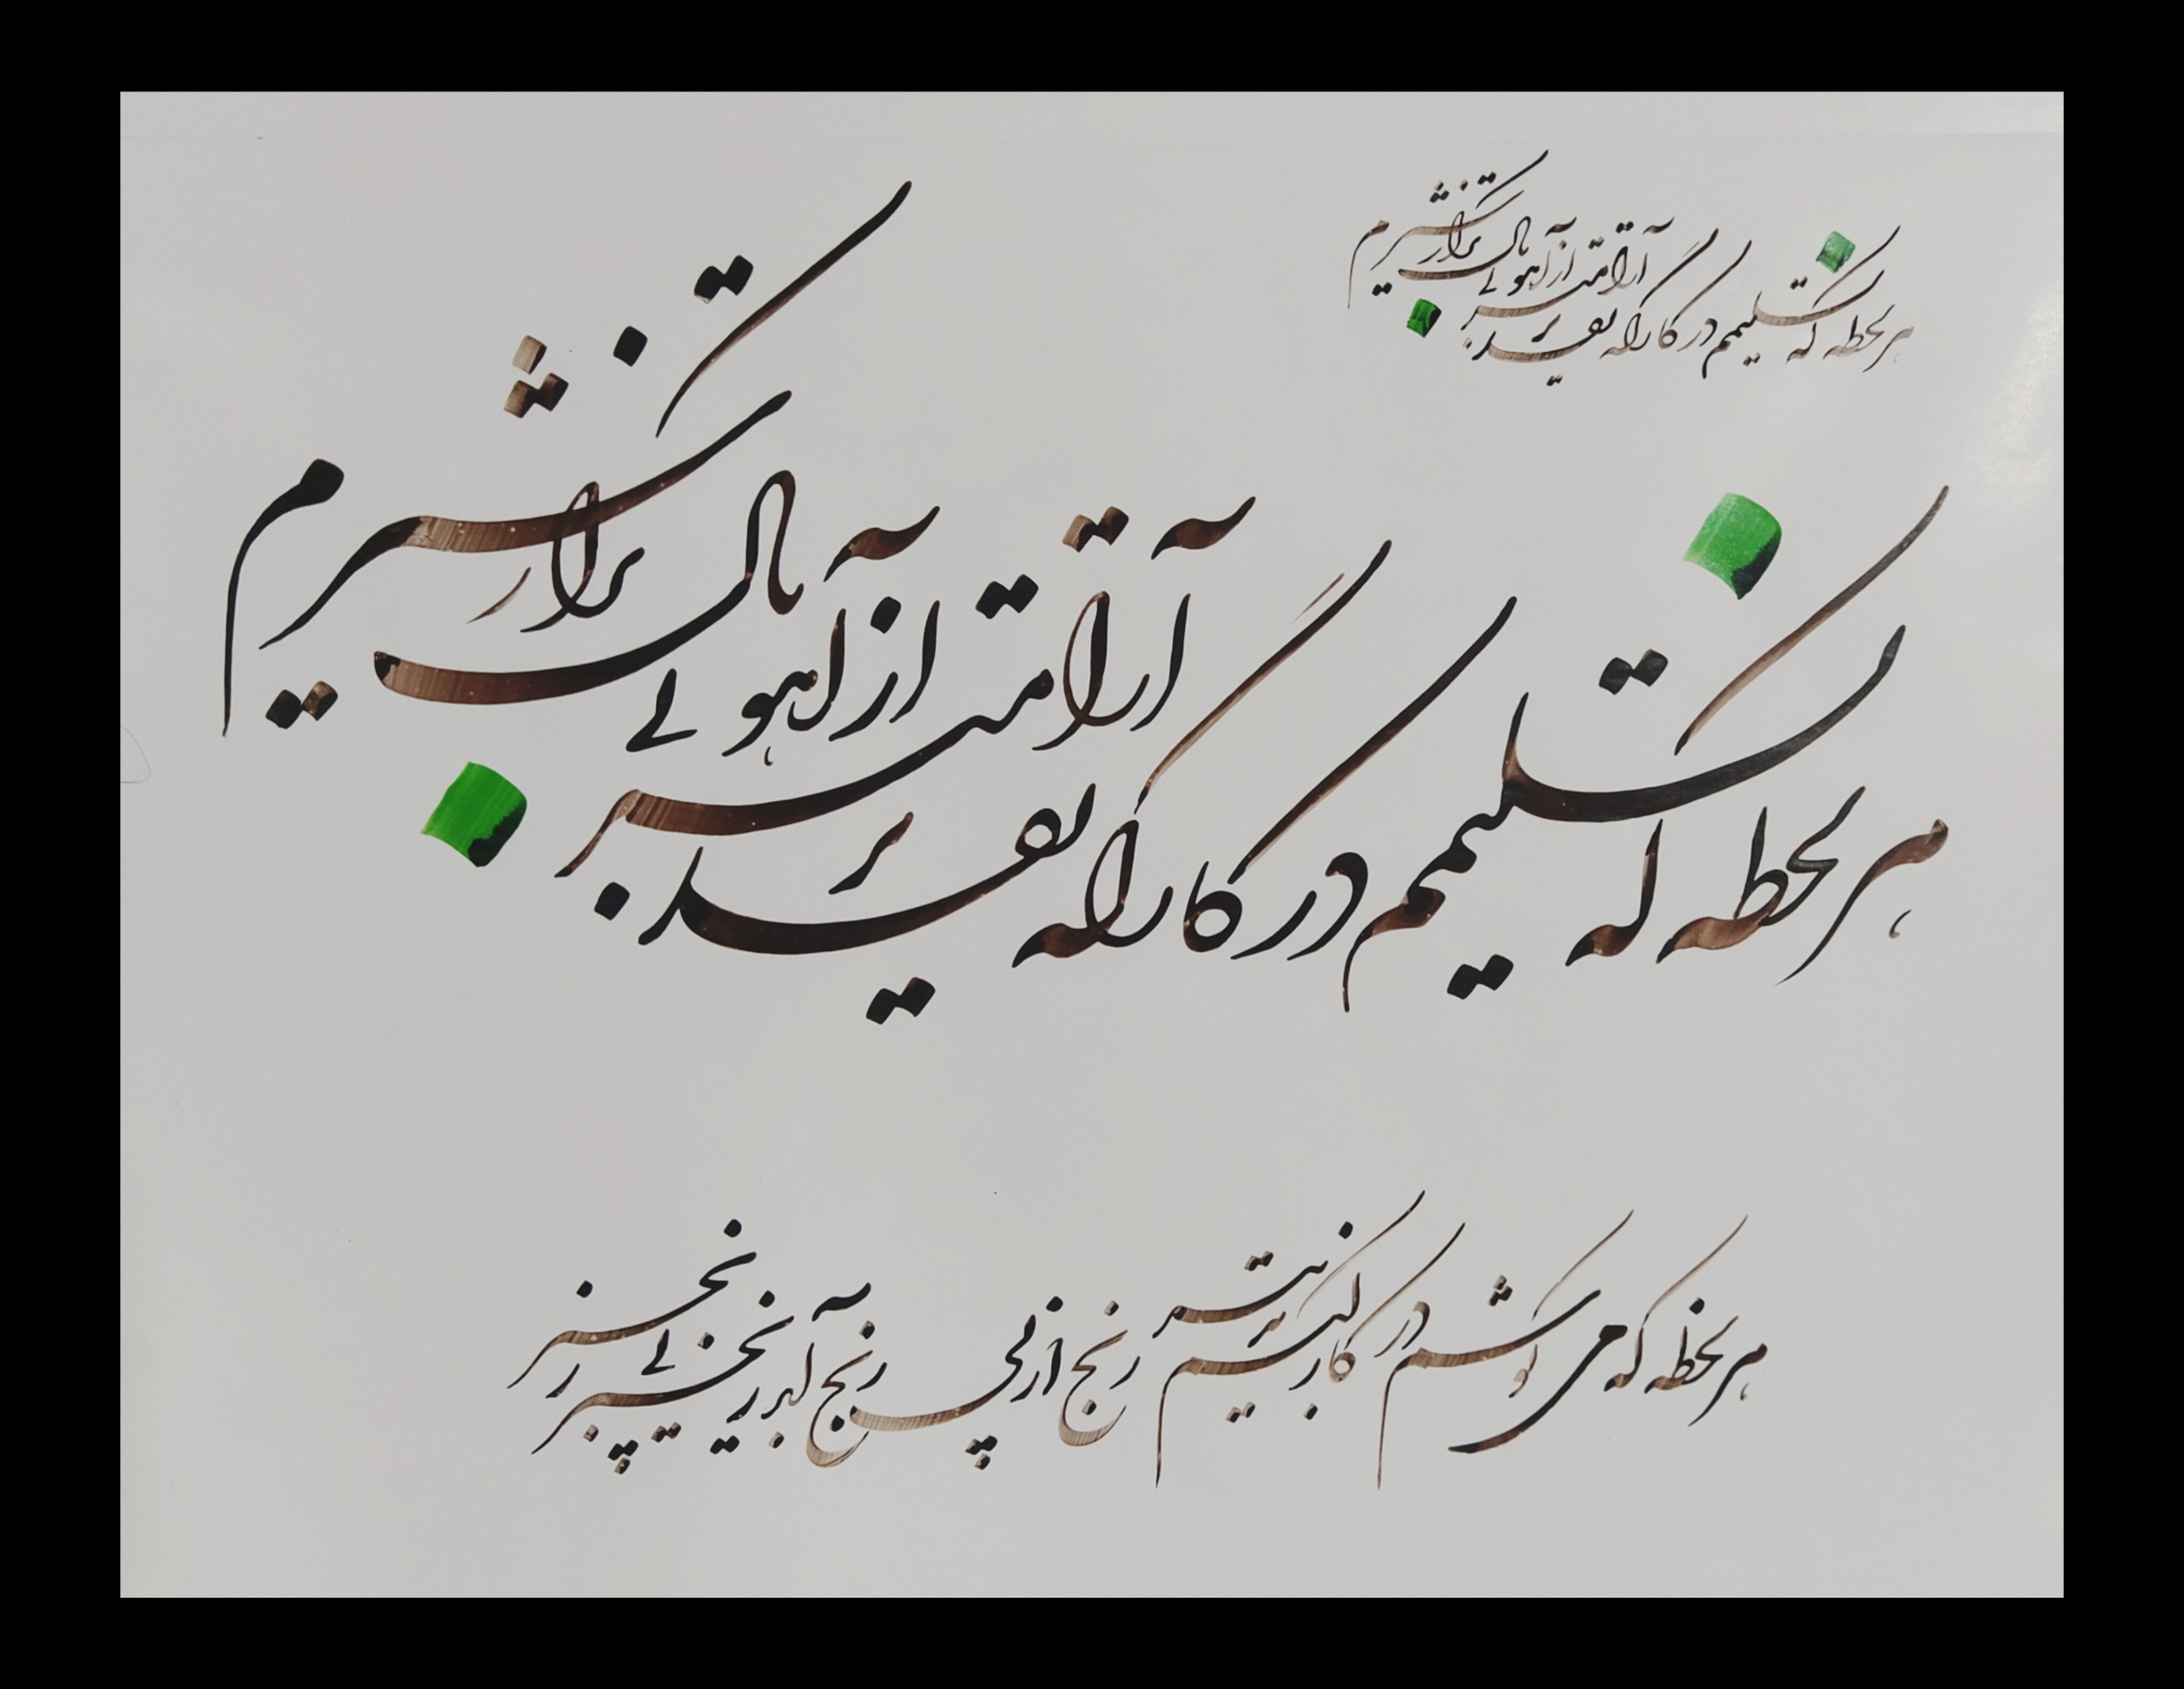 هر لحظه که تسلیمم در کارگه تقدیر
آرامتر از آهو بی باک تر از شیرم
هر لحظه که تسلیمم در کارگه تقدیر
آرامتر از آهو بی باک تر از شیرم
هر لحظه که می کوشم در کار کنم تدبیر
رنج از پی رنج آید زنجیر پی زنجیر